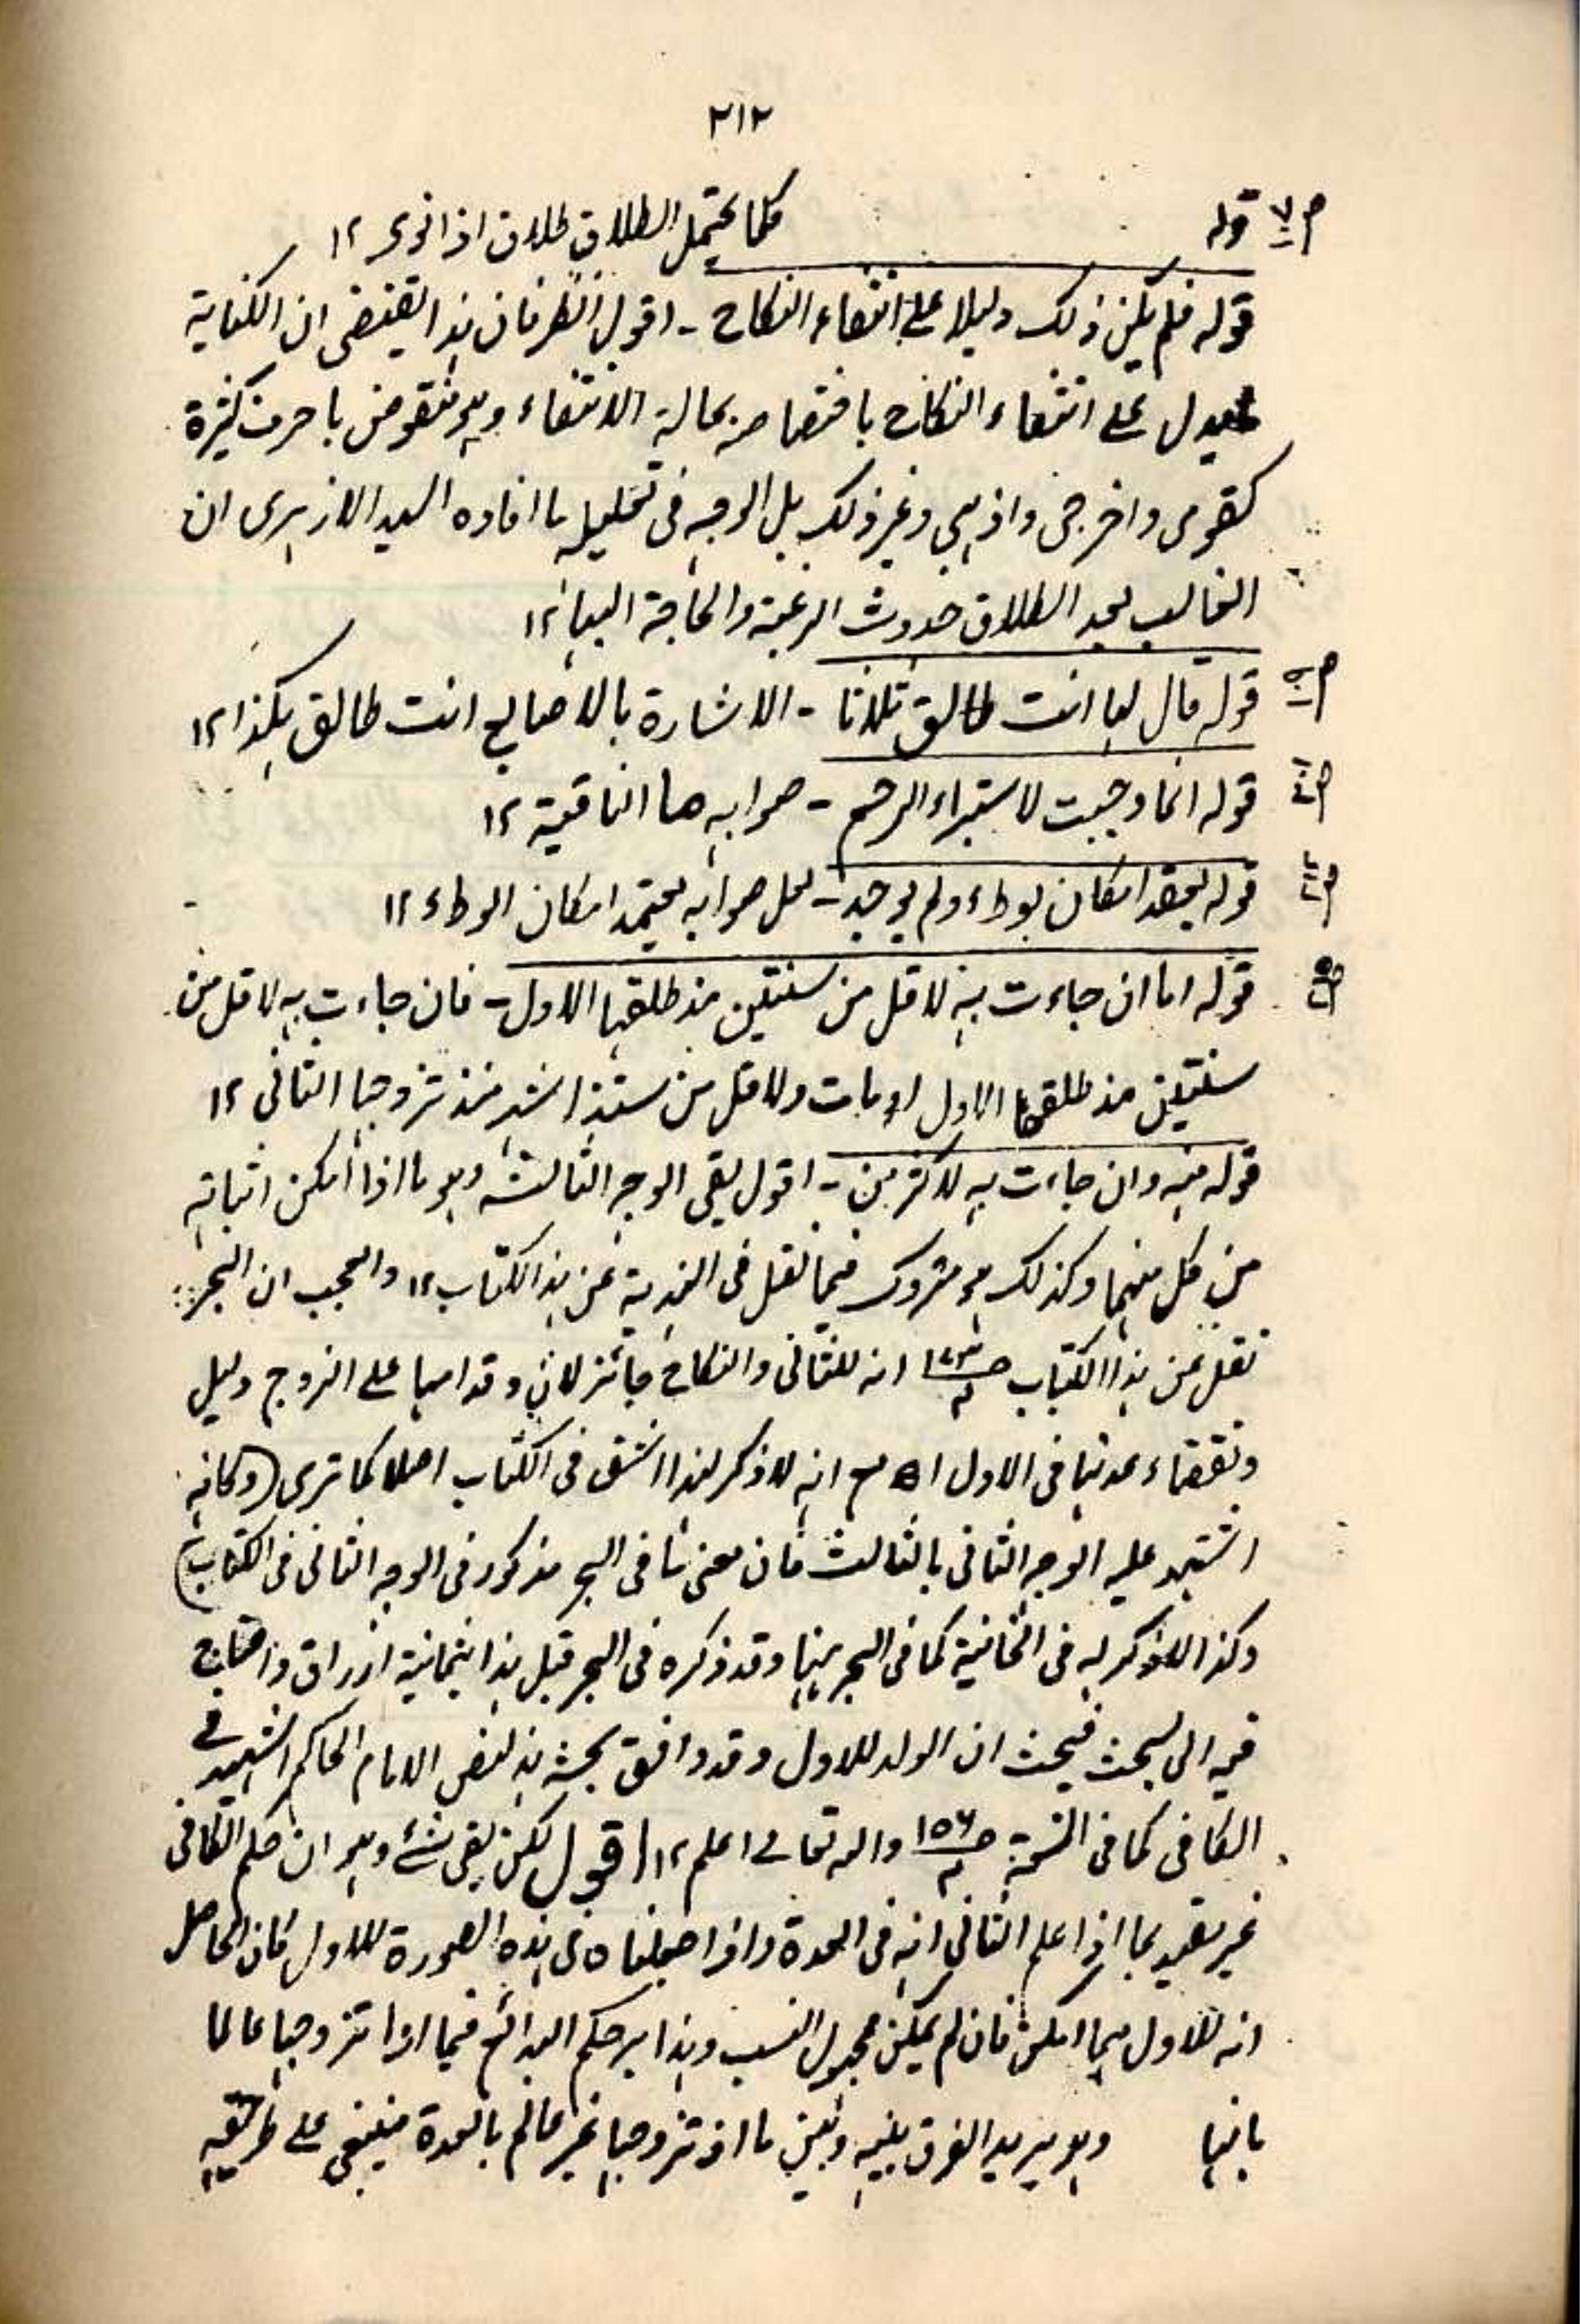 ٢١٢
قوله كلما يحتمل الطلاق طلاق اذا نوى ١٢
قوله فلم يكن ذلك دليلا على انتفاء النكاح - اقول انظر فان هذا يقتضى ان الكناية
على انتفاء النكاح باختصاصه بحالة الانتفاء وهو منقوض باحرف كثيرة
كقومى واخرجى واذهبى وغير ذلك بل الوجه فى تعليله ما افاده السيد الازهرى ان
الغالب بعد الطلاق حدوث الرغبة والحاجة اليها ١٢
قوله قال لها انت طالق ثلاثا - الاشارة بالاصابع انت طالق هكذا ١٢
قوله انما وجبت لاستبراء الرحم - صوابه ما النافية ١٢
قوله امكان بوطء ولم يوجد - لعل صوابه يعتمد امكان الوطء ١٢
قوله اما ان جاءت به لاقل من سنتين مذ طلقها الاول - فان جاءت به لاقل من
سنتين مذ طلقها الاول او مات ولاقل من ستة اشهر منذ تزوجها الثانى ١٢
قوله منه وان جاءت به لاكثر من - اقول بقى الوجه الثالث وهو ما اذا امكن اثباته
من كل منهما وكذلك هو متروك فيما نقل فى الهندية عن هذا الكتاب ١٢ والعجب ان البحر
نقل عن هذا الكتاب انه للثانى والنكاح جائز لان اقدامها على التزوج دليل
انقضاء عدتها فى الاول اه مع انه لا ذكر لهذا الشق فى الكتاب اصلا كما ترى (وكانه
اشتبه عليه الوجه الثانى بالثالث فان معنى ما فى البحر مذكور فى الوجه الثانى فى الكتاب)
وكذا لا ذكر له فى الخانية كما فى البحر منها وقد ذكره فى البحر قبل هذا بثمانية اوراق واحتاج
فيه الى البحث فبحث ان الولد للاول وقد وافق بحثه هذا نص الامام الحاكم الشهيد فى
الكافى كما فى المنحة ص١٥٦ والله تعالى اعلم ١٢ اقول لكن بقى شئ وهو ان حكم الكافى
غير مقيد بما اذا علم الثانى انه فى العدة واذا جعلناه فى هذه الصورة للاول كان الحاصل
انه للاول مهما امكن فان لم يمكن مجهول النسب وهذا هو حكم البدائع فيما اذا تزوجها عالما
بانها وهو يريد الفرق بينه وبين ما اذ تزوجها غير عالم بالعدة فينبغى على طريقه